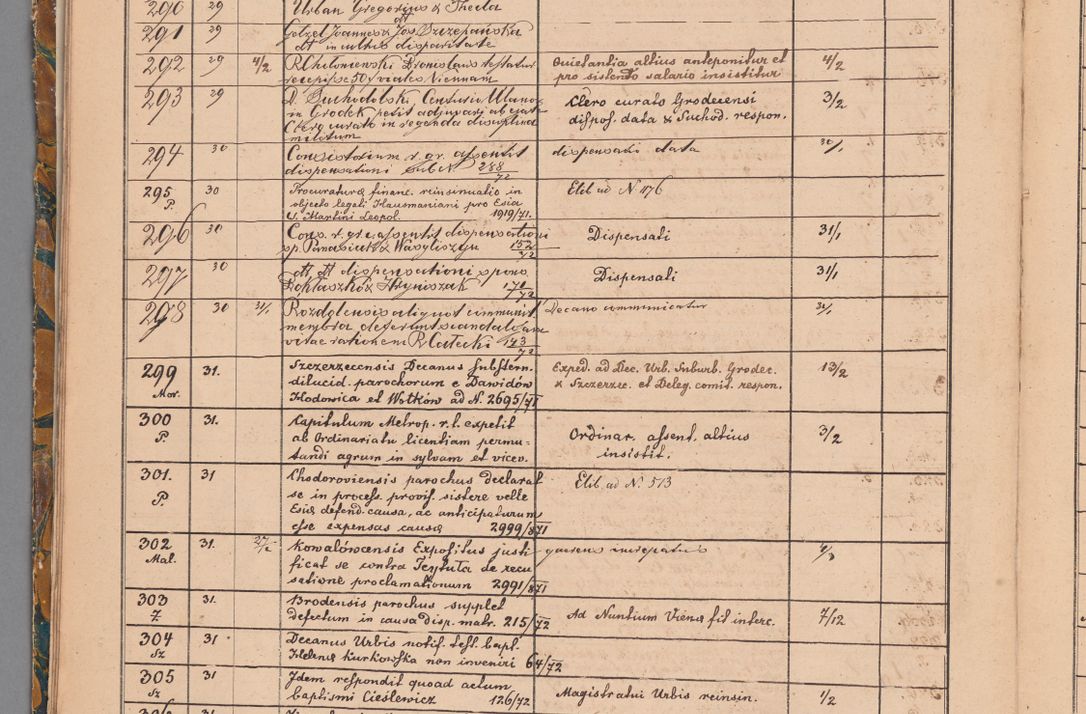 290 29 Urban Gregorius & Thecla
dt
291 29 Golzel Joannes & Jos. Szczepańska
dt in cultus disparitate
292 29 4/2 R. Chełoniewski Bronislaus testatur Quietantia altius anteponitur et 4/2
recepisse 50 f viales Viennam pro sistendo salario insistitur
293 29 D. Suchodolski Centurio Ulanor Clero curato Grodecensi 3/2
in Grodek petit adjuvari ab ejate dispos. data & Suchod. respon.
Clero curato in regenda disciplina
militum
294 30 Consistorium r. gr. assentit dispensati data 30/1
dispensationi sub N. 288/72
295 30 Procuratura financ. reinsinuatio in Elib ad N 1176
P. objecto legati Hausmaniani pro Esia
S. Martini Leopol. 1919/71.
296 30 Cons. r. gr. c. assentit dispensationi Dispensati 31/1
sp. Panasiuk & Wasyliszyn 152/72
297 30 dt dt dispensationi spons Dispensati 31/1
Hryniszak 171/72
298 30 31/1 Rozdolensis aliquot communit. Decano communicatur 31/1
membra deferunt scandalosam
vitae rationem R. Całecki 173/72
299 31. Szczerzecensis Decanus substern. Exped. ad Dec. Urb. Suburb. Grodec. 13/2
Mor. dilucid. parochorum e Dawidów & Szczerzec. et Deleg. comit. respon.
Hodowica et Wołków ad N. 2695/71
300 31. Capitulum Metrop. r. l. expetit Ordinar. assent. altius 3/2
P ab Ordinariatu licentiam permu- insistit.
tandi agrum in sylvam et vicev.
301. 31 Chodoroviensis parochus declarat Elib ad N. 513
P. se in process. provis. sistere velle
Esiæ defend. causa, ac anticipaturum
esse expensas causæ 2999/871
302 31. 27/2 Kowalówcensis Expositus justi
Mat. ficat se contra Teytuta de recu
satione proclamationum 2991/871
303 31. Brodensis parochus supplet Ad Nuntium Vienæ fit interc. 7/12
Z. defectum in causa disp. matr. 215/72
304 31 Decanus Urbis notif. test. bapt.
Sz Helenæ Kurkowska non inveniri 64/72
305 31 Idem respondit quoad actum Magistratui Urbis reinsin. 1/2
Sz baptismi Cieślewicz 126/72
306 31